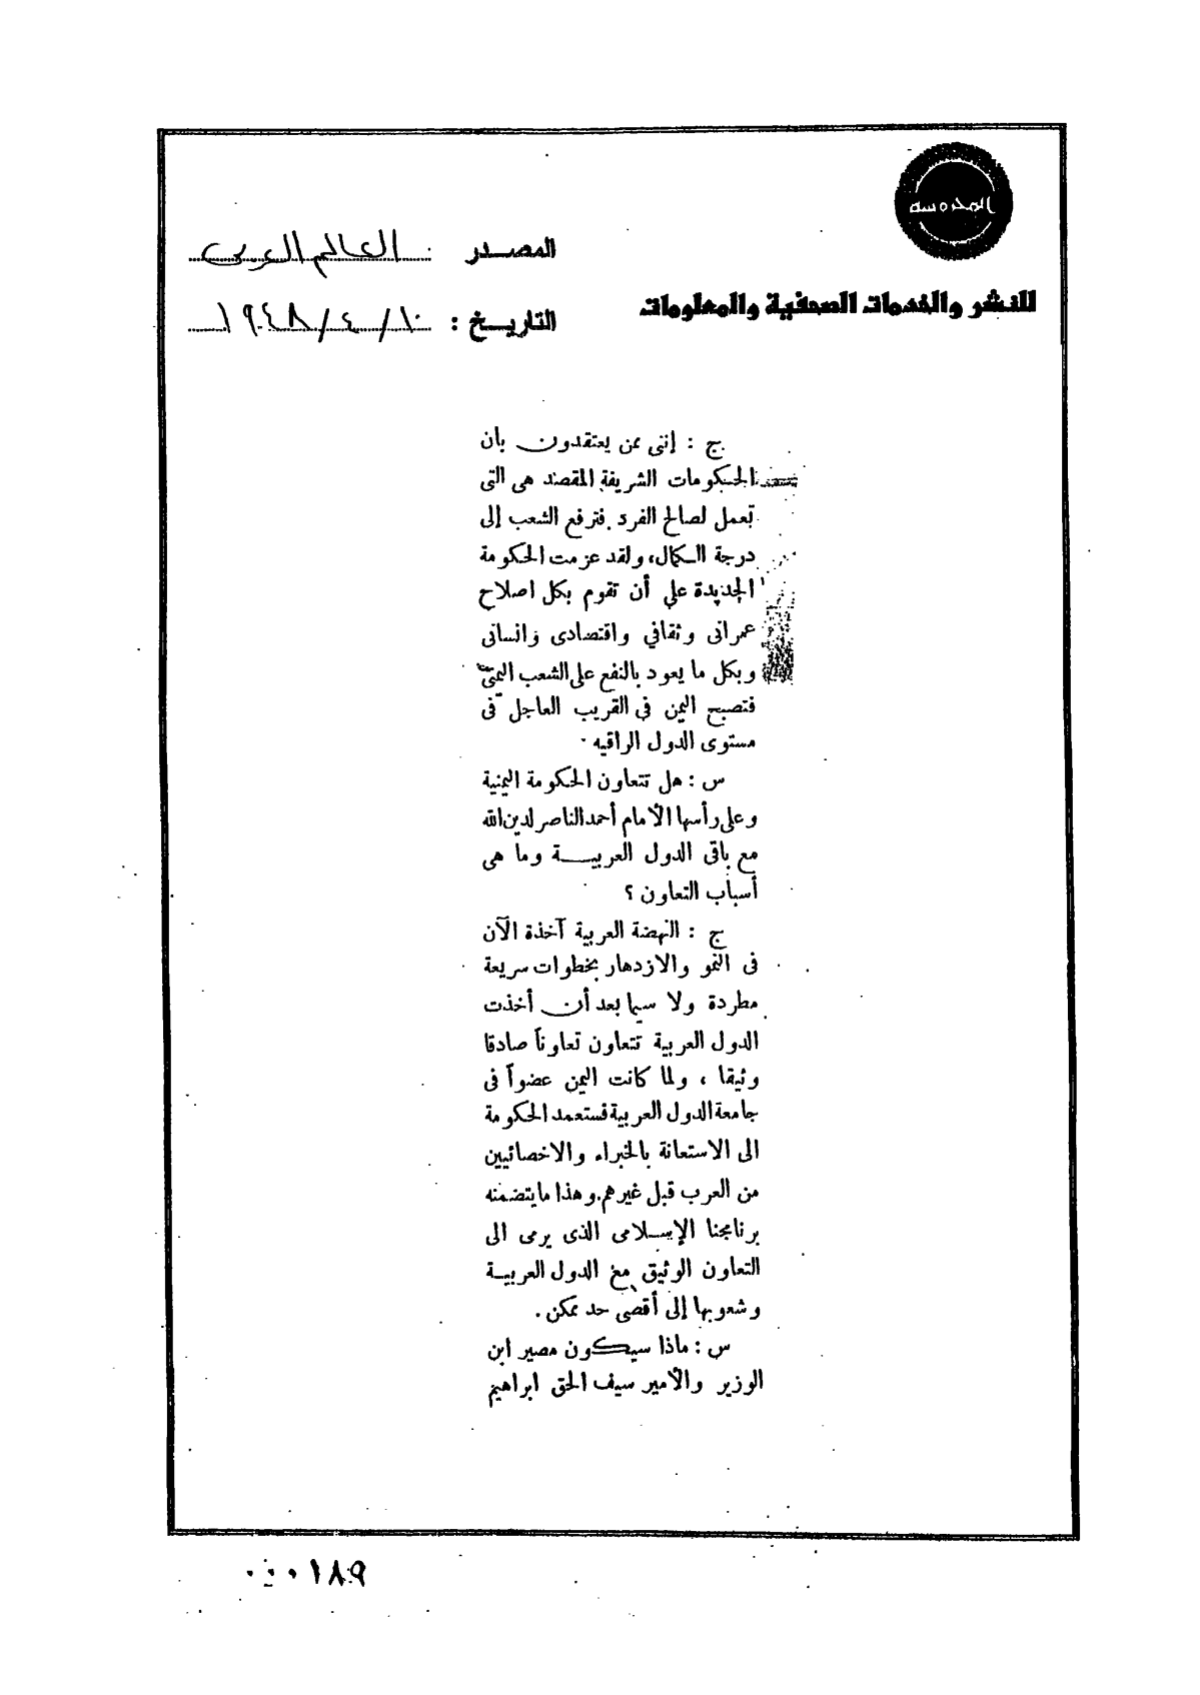 المحروسه
للنشر والخدمات الصحفية والمعلومات
المصدر : العالم العربى
التاريخ : ١٠/٤/١٩٤٨
ج : إننى ممن يعتقدون بان
الحكومات الشريفة المقصد هى التى
تعمل لصالح الفرد فترفع الشعب إلى
درجة الكمال، ولقد عزمت الحكومة
الجديدة على أن تقوم بكل اصلاح
عمرانى وثقافي واقتصادى وانسانى
وبكل ما يعود بالنفع على الشعب اليمنى
فتصبح اليمن فى القريب العاجل فى
مستوى الدول الراقيه .
س : هل تتعاون الحكومة اليمنية
وعلى رأسها الأمام أحمد الناصر لدين الله
مع باقى الدول العربية وما هى
أسباب التعاون ؟
ج : النهضة العربية آخذة الآن
فى النمو والازدهار بخطوات سريعة
مطردة ولا سيما بعد أن أخذت
الدول العربية تتعاون تعاوناً صادقا
وثيقا ، ولما كانت اليمن عضواً فى
جامعة الدول العربية فستعمد الحكومة
الى الاستعانة بالخبراء والاخصائيين
من العرب قبل غيرهم وهذا ما يتضمنه
برنامجنا الإسلامى الذى يرمى الى
التعاون الوثيق مع الدول العربية
وشعوبها إلى أقصى حد ممكن .
س : ماذا سيكون مصير ابن
الوزير والأمير سيف الحق ابراهيم
٠٠٠١٨٩